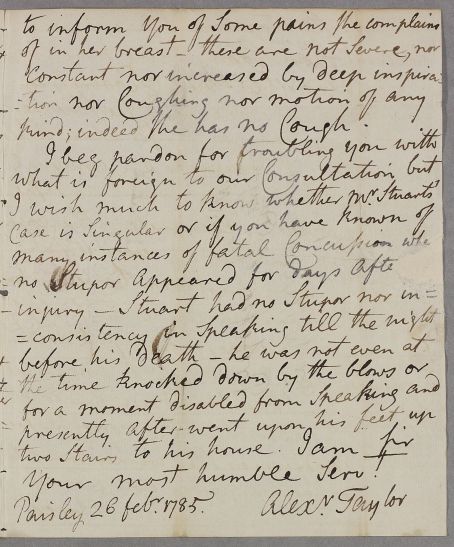 to inform You of Some pains She complains
of in her breast - these are not Severe, nor
Constant nor increased by deep inspira=
=tion nor Coughing nor motion of any
kind; indeed She has no Cough.
I beg pardon for troubling you with
what is foreign to our Consultation but
I wish much to know whether Mr. Stuarts
Case is Singular or if you have known of
many instances of fatal Concussion whe
no Stupor Appeared for days Afte
=injury - Stuart had no Stupor nor in=
=consistency in Speaking till the night
before his death - he was not even at
the time knocked down by the blows or
for a moment disabled from Speaking and
presently after went upon his feet up
two Stairs to his house. I am Sir
Your most humble Serv.t
Paisley 26 febr. 1785. Alexr. Taylor